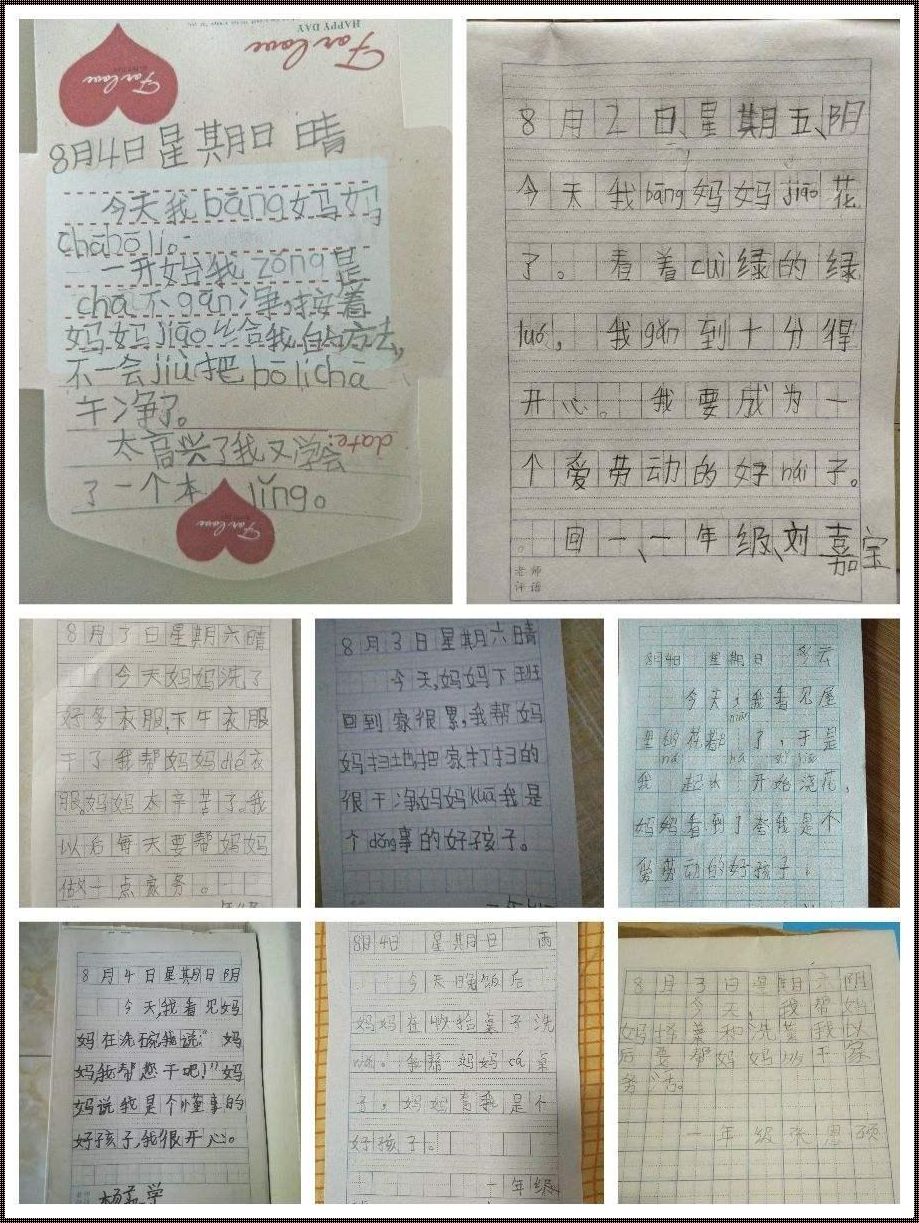 HAPPY DAY
For love
For love
8月4日星期日 晴
今天我bāng妈妈
chābōli。
一开始我zǒng是
chā不gān净,接着
妈妈jiāo给我的方法,
不一会jiù把bōlichā
干净了。
太高兴了我又学会
date:
了一个本lǐng。
For love
8月2日、星期五、阴
今天我bāng妈妈jiāo花
了。看着cuì绿的绿
luó,我gǎn到十分得
开心。我要成为一
个爱劳动的好hái子。
回一、一年级、刘嘉宝
老师
评语
8月3日星期六晴
今天妈妈洗了
好多衣服,下午衣服
干了我帮妈妈dié衣
服妈妈太辛苦了,我
以后每天要帮妈妈
做一点家务。
8月3日星期六晴
今天,妈妈下班
回到家很累,我帮妈
妈扫地把家打扫的
很干净妈妈kuā我是
个dǒng事的好孩子。
8月4日 星期日 多云
今天,我看见屋
里的花都 了,于是
我 起水 开始浇花,
妈妈看到了夸我是个
爱劳动的好孩子!
8月4日星期日阴
今天,我看见妈
妈在洗碗我说:“妈
妈,我帮您干吧!”妈
妈说我是个懂事的
好孩子,我很开心。
8月4日 星期日 雨
今天晚饭后
妈妈在收拾桌子洗
wǎn。我帮妈妈cā桌
子,妈妈夸我是个
好孩子。
一年级
8月3日星期六阴
今天,我帮妈
妈择菜和洗菜我以
后要帮妈妈多干家
务活。
一年级